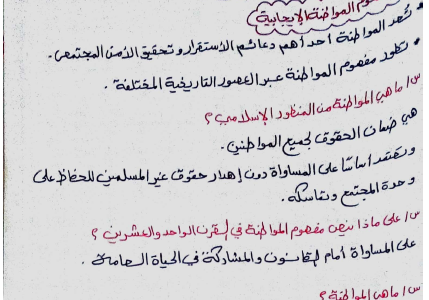 مفهوم المواطنة الإيجابية
• تُعد المواطنة أحد أهم دعائم الاستقرار وتحقيق الأمن المجتمعي.
• تطور مفهوم المواطنة عبر العصور التاريخية المختلفة.
س/ ما هي المواطنة من المنظور الإسلامي؟
هي ضمان الحقوق لجميع المواطنين.
وتعتمد أساسًا على المساواة دون إهدار حقوق غير المسلمين للحفاظ على
وحدة المجتمع وتماسكه.
س/ على ماذا ينص مفهوم المواطنة في القرن الواحد والعشرين؟
على المساواة أمام القانون والمشاركة في الحياة العامة.
س/ ما هي المواطنة؟